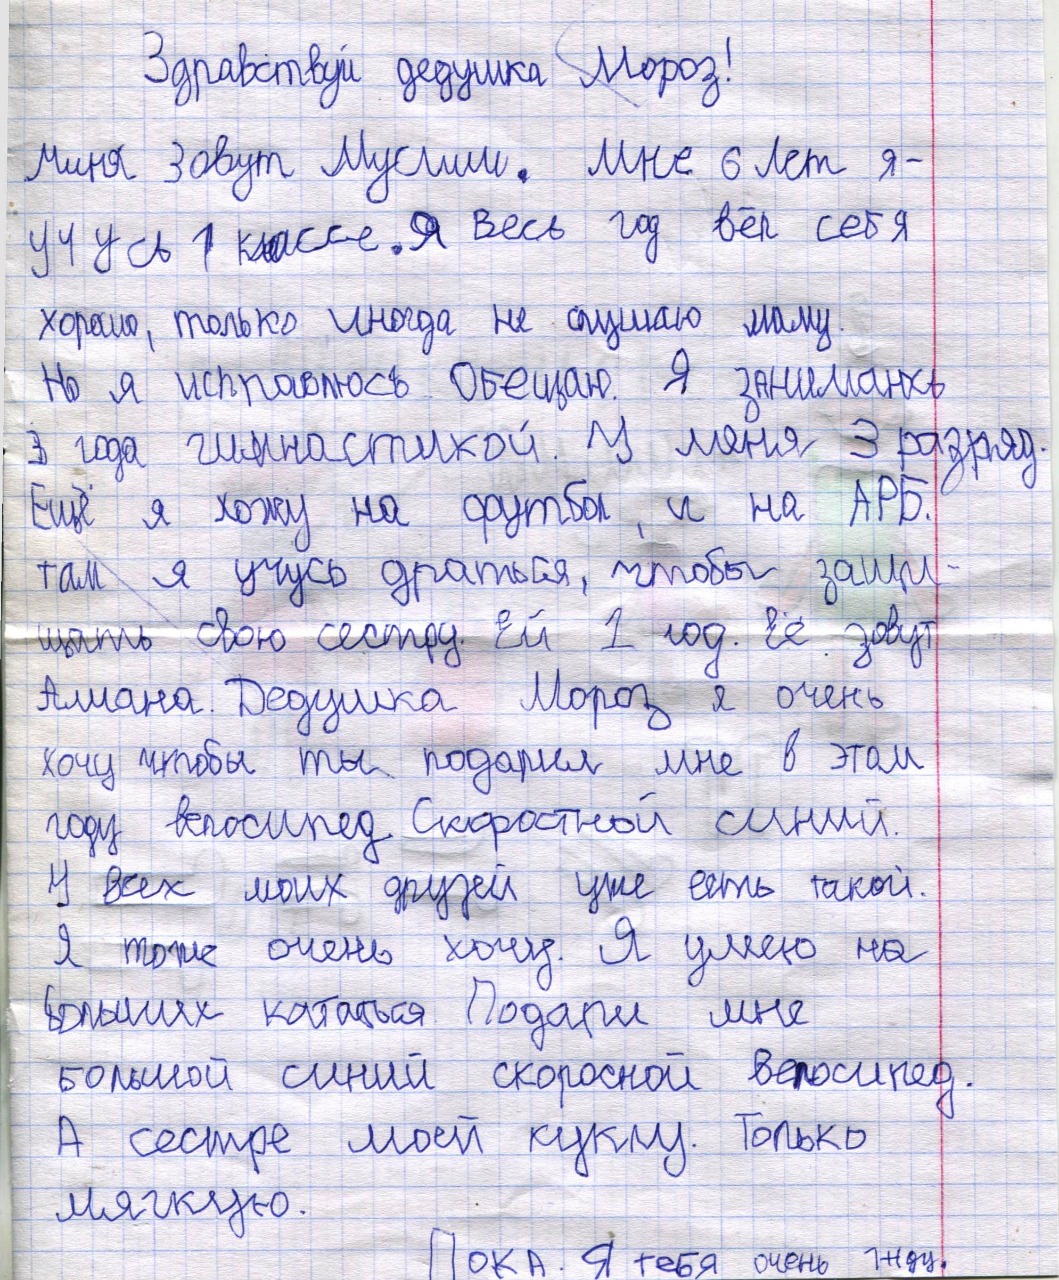 Здравствуй дедушка Мороз!
Миня зовут Муслим. Мне 6 лет я-
учусь 1 классе. Я весь год вёл себя
хорошо, только иногда не слушаю маму.
Но я исправлюсь Обещаю. Я занимаюсь
3 года гимнастикой. У меня 3 разряд.
Ещё я хожу на футбол, и на АРБ.
там я учусь драться, чтобы защи-
щать свою сестру. Ей 1 год. Её зовут
Амана. Дедушка Мороз я очень
хочу чтобы ты подарил мне в этом
году велосипед Скоростной синий.
У всех моих друзей уже есть такой.
Я тоже очень хочу. Я умею на
больших кататься Подари мне
большой синий скоросной велосипед.
А сестре моей куклу. Только
мягкую.
Пока. Я тебя очень жду.